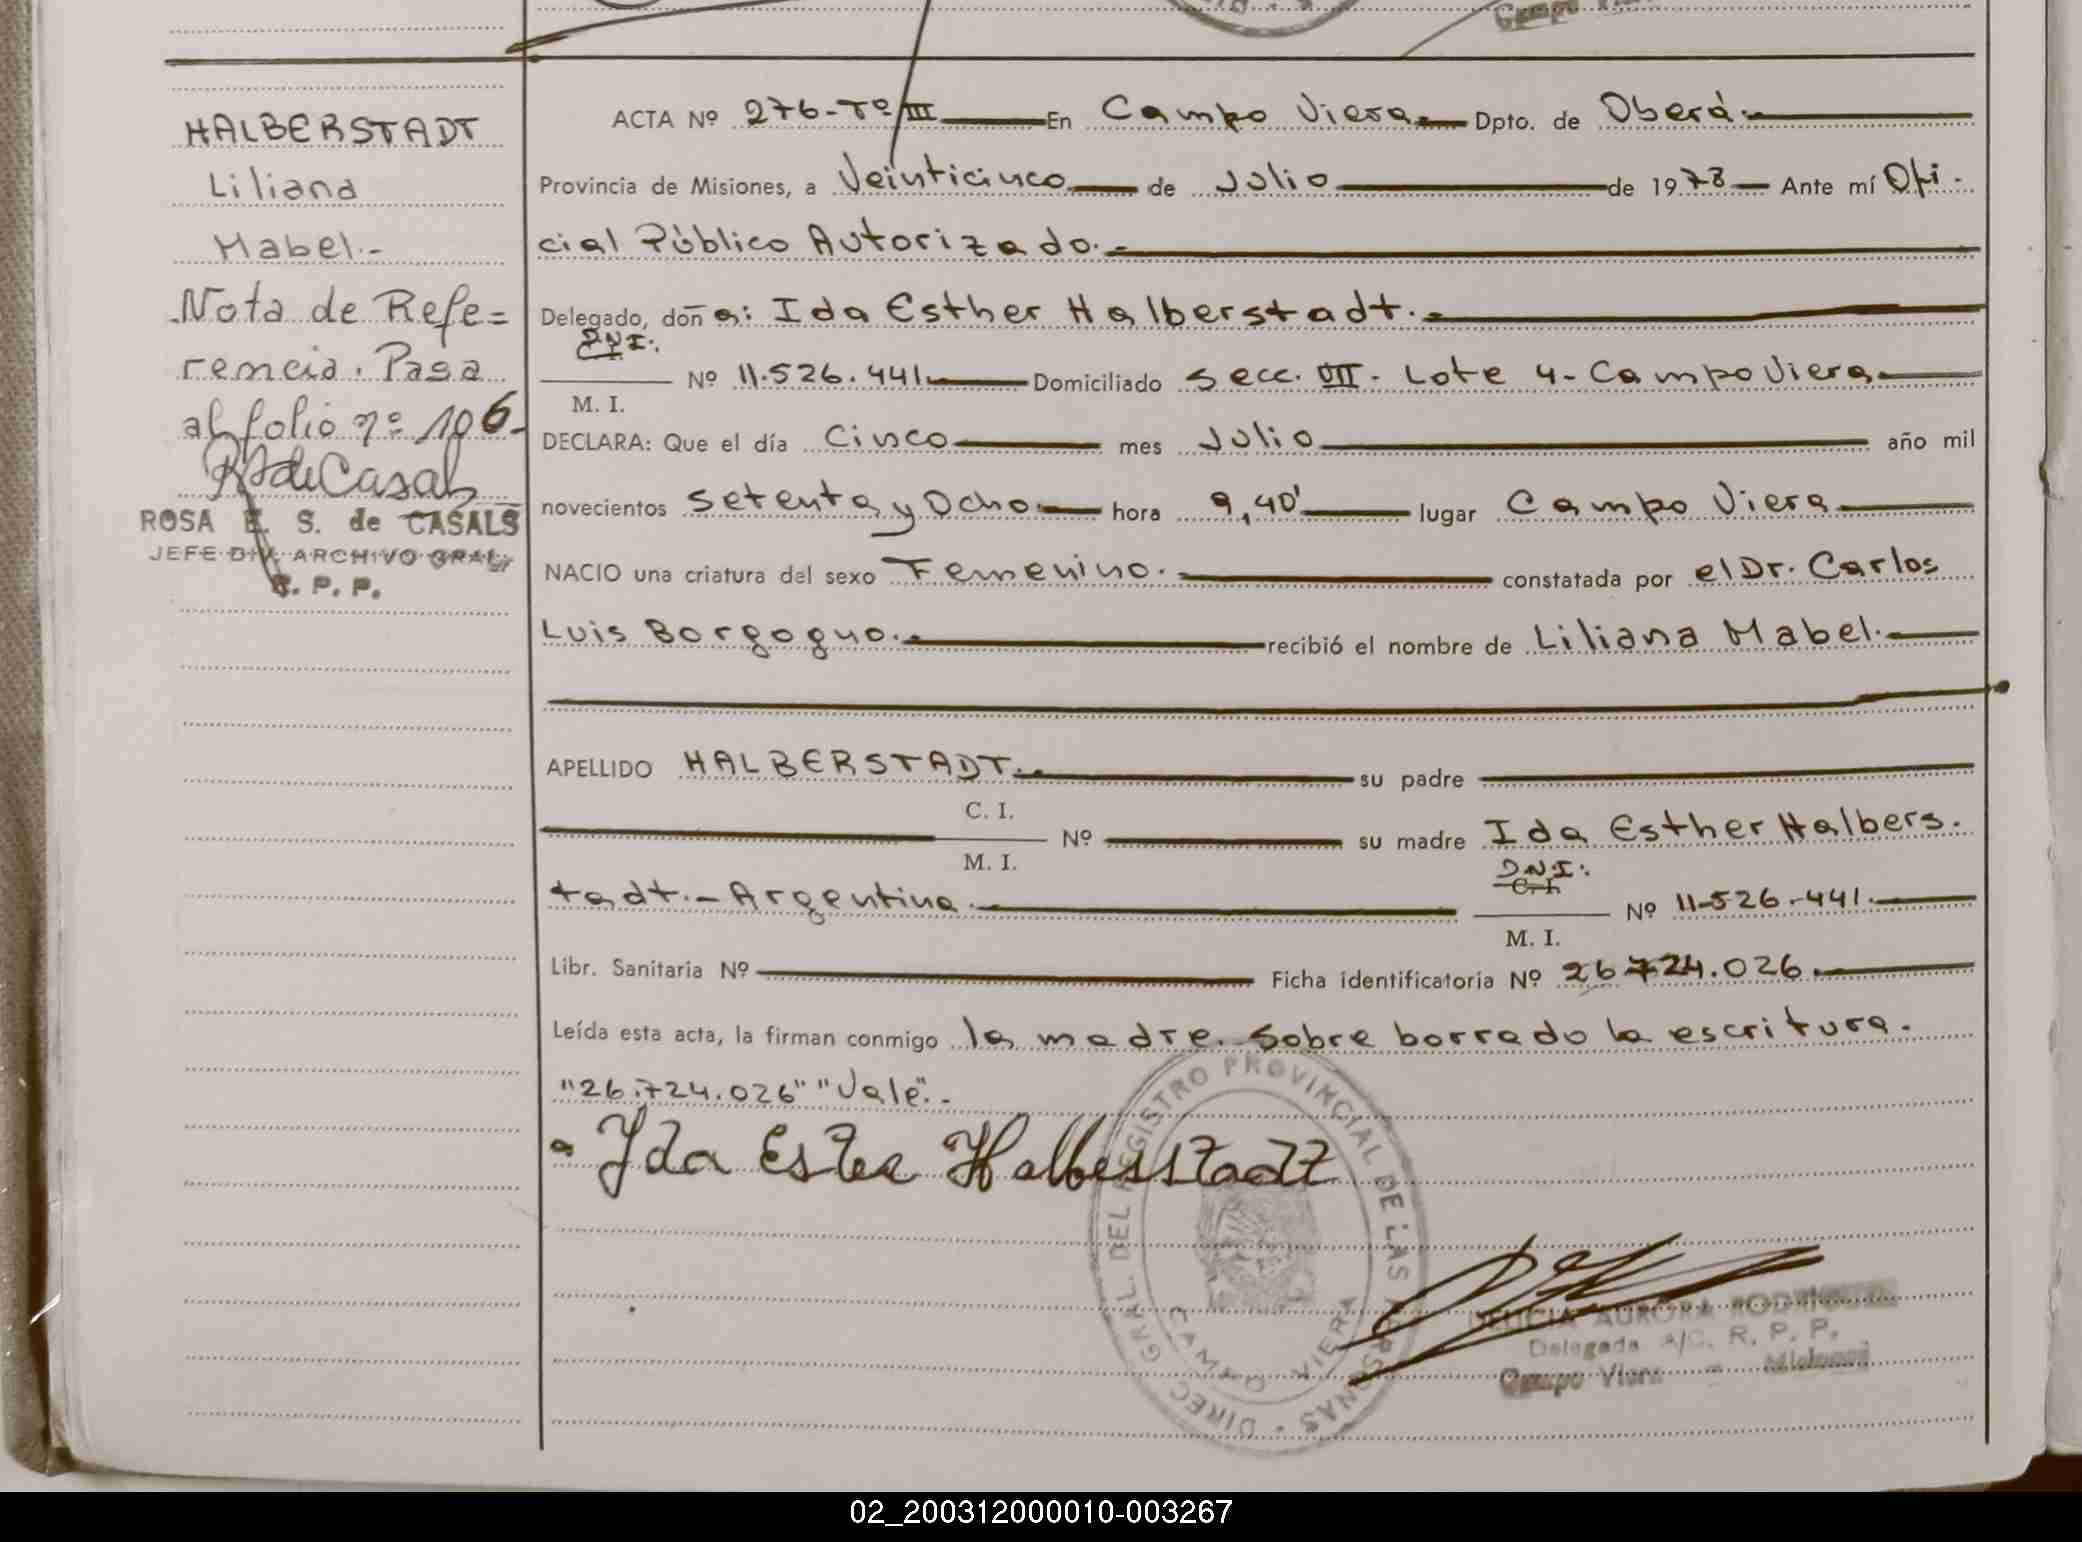 HALBERSTADT
Liliana
Mabel.-
Nota de Refe=
rencia. Pasa
al folio nº 106.-
RSdeCasals
ROSA E. S. de CASALS
JEFE DIV. ARCHIVO GRAL.
R. P. P.
ACTA Nº 276-Tº III En Campo Viera Dpto. de Oberá.
Provincia de Misiones, a Veinticinco de Julio de 1978 Ante mí Ofi-
cial Público Autorizado.-
Delegado, doña: Ida Esther Halberstadt.-
D.N.I:.
Nº 11.526.441. Domiciliado Secc. VII- Lote 4- Campo Viera.
M. I.
DECLARA: Que el día Cinco mes Julio año mil
novecientos Setenta y Ocho hora 9,40' lugar Campo Viera
NACIO una criatura del sexo Femenino.- constatada por el Dr. Carlos
Luis Borgogno.- recibió el nombre de Liliana Mabel.-
APELLIDO HALBERSTADT.- su padre
C. I.
Nº su madre Ida Esther Halbers-
M. I.
D.N.I:.
C. I.
tadt.- Argentina.- Nº 11-526.-441.-
M. I.
Libr. Sanitaria Nº Ficha identificatoria Nº 26.724.026.-
Leída esta acta, la firman conmigo la madre. Sobre borrado la escritura.
"26.724.026" "Vale".-
Ida Ester Halbesstadt
DIREC. GRAL. DEL REGISTRO PROVINCIAL DE LAS PERSONAS
CAMPO VIERA
DELICIA AURORA RODRIGUEZ
Delegada A/C. R. P. P.
Campo Viera - Misiones
02_200312000010-003267